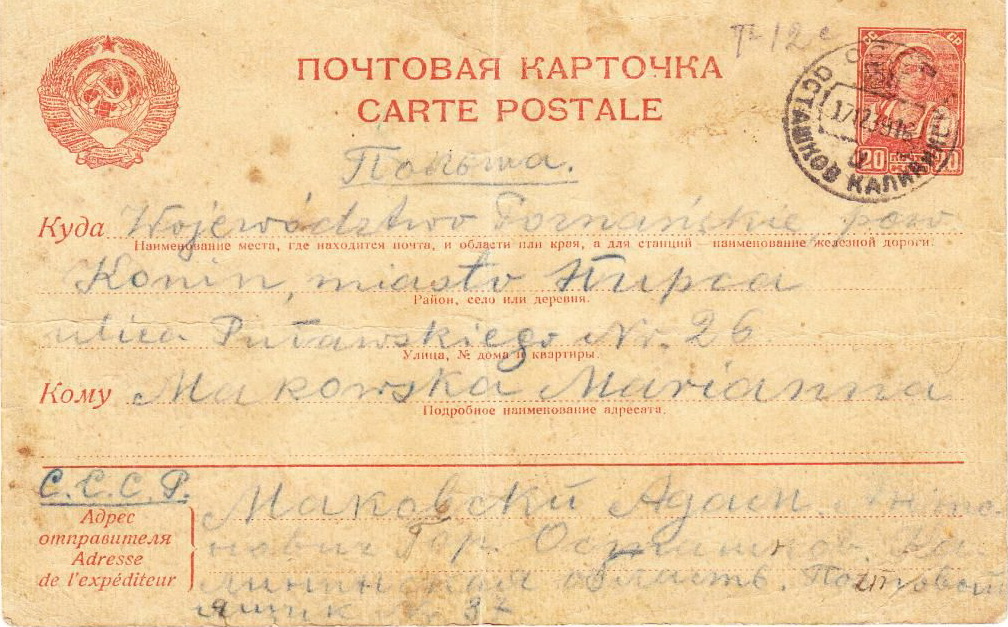 ПОЧТОВАЯ КАРТОЧКА
CARTE POSTALE
СС СР
20 20
СССР
17 12 39 16
ОСТАШКОВ КАЛИНИНСК
Польша.
Куда Województwo Poznańskie, pow
Наименование места, где находится почта, и области или края, а для станций — наименование железной дороги.
Konin, miasto Słupca
Район, село или деревня.
ulica Puławskiego Nr. 26
Улица, № дома и квартиры.
Кому Makowska Marianna
Подробное наименование адресата.
С.С.С.Р.
Адрес
отправителя
Adresse
de l'expéditeur
Маковски Адам Анто
нович Гор. Осташков. Ка
лининская область. Почтовой
ящик № 37